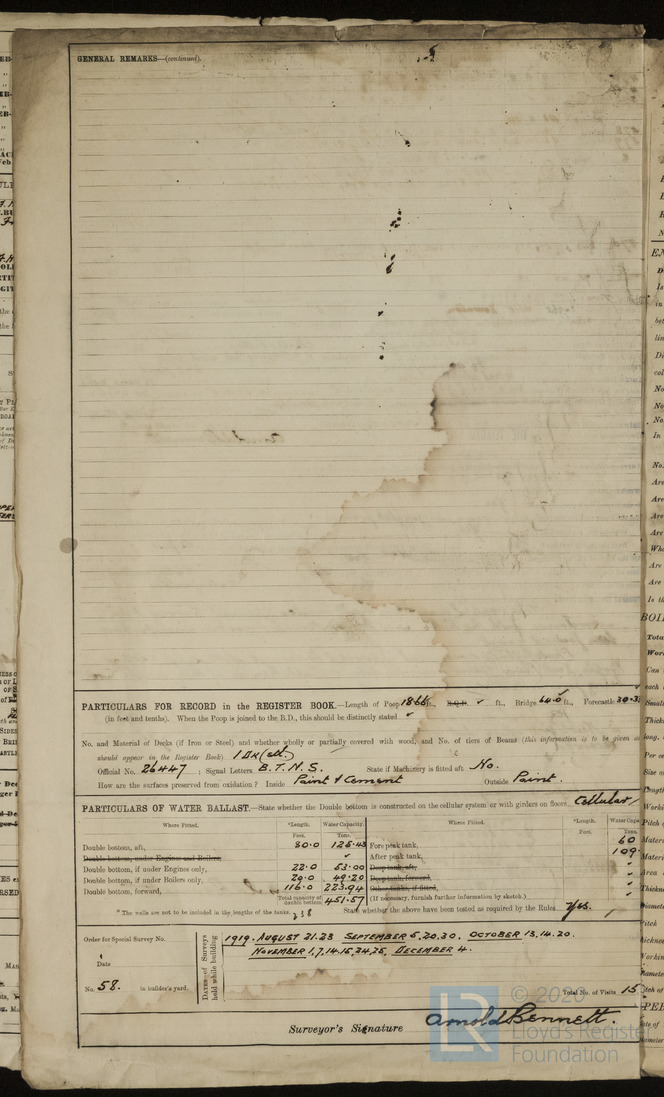 GENERAL REMARKS—(continued).
PARTICULARS FOR RECORD in the REGISTER BOOK.—Length of Poop ft., R.Q.D. ✓ ft., Bridge 64.0 ft., Forecastle
(in feet and tenths). When the Poop is joined to the B.D., this should be distinctly stated ✓
No. and Material of Decks (if Iron or Steel) and whether wholly or partially covered with wood, and No. of tiers of Beams (this information is to be given as
should appear in the Register Book) 1 Dk (stl)
Official No. 26447 ; Signal Letters B.T.N.S. State if Machinery is fitted aft No.
How are the surfaces preserved from oxidation? Inside Paint & Cement Outside Paint.
PARTICULARS OF WATER BALLAST.—State whether the Double bottom is constructed on the cellular system or with girders on floors Cellular
Where Fitted. *Length. Water Capacity. Where Fitted. *Length. Water Capac
Feet. Tons. Feet. Tons.
Double bottom, aft, 80.0 125.43 Fore peak tank, 60
Double bottom, under Engines and Boilers, ✓ After peak tank, 109
Double bottom, if under Engines only, 22.0 53.00 Deep tank, aft,
Double bottom, if under Boilers only, 20.0 49.20 Deep tank, forward,
Double bottom, forward, 116.0 223.94 Other tanks, if fitted,
Total capacity of double bottom 451.57 (If necessary, furnish further information by sketch.)
* The wells are not to be included in the lengths of the tanks. 238 State whether the above have been tested as required by the Rules Yes.
Order for Special Survey No.
Date
No. 58. in builder's yard.
Dates of Surveys held while building
1919. AUGUST 21.28 SEPTEMBER 5,20.30. OCTOBER 13,14.20.
NOVEMBER 1,7,14.15,24,25, DECEMBER 4.
Total No. of Visits 15
Surveyor's Signature Arnold Bennett.
© 2020
Lloyd's Register
Foundation